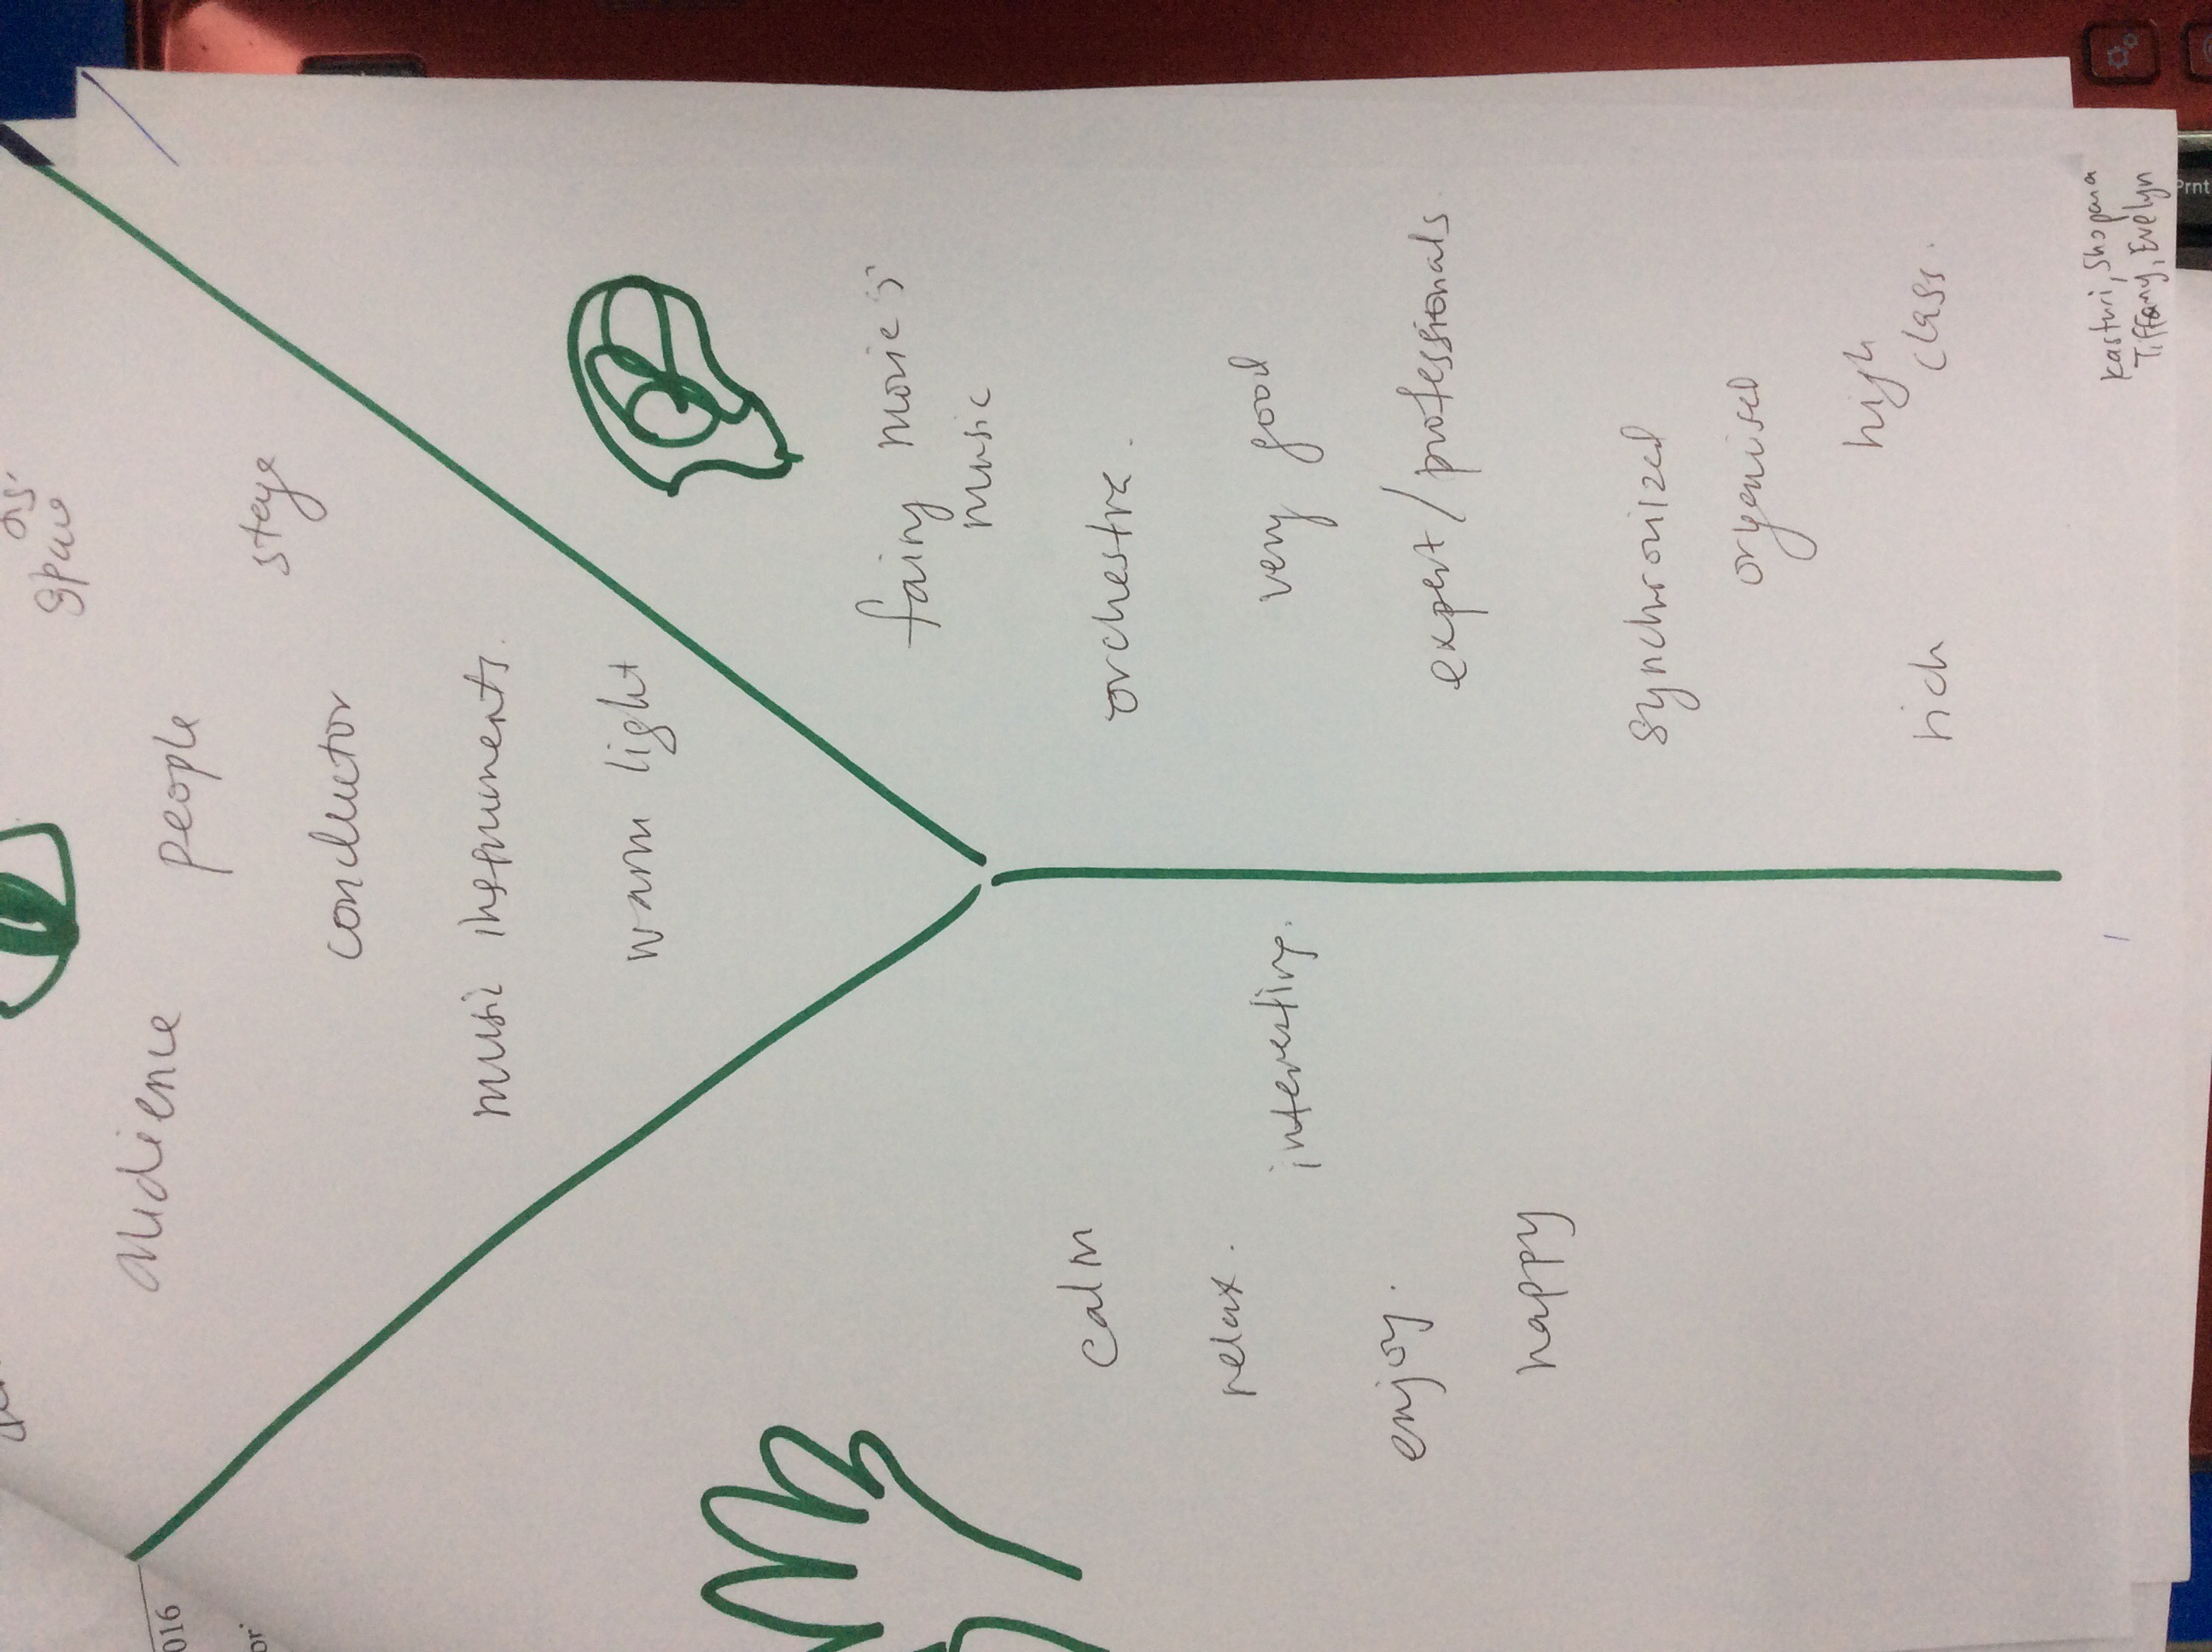 Audience
people
stage
conductor
music instruments.
warm light
fairy movie
music
orchestra.
very good
expert/professionals
synchronized
organised
high
class.
rich
calm
relax.
interesting.
enjoy.
happy
Kasturi, Shopana
Tiffany, Evelyn
016
Prnt